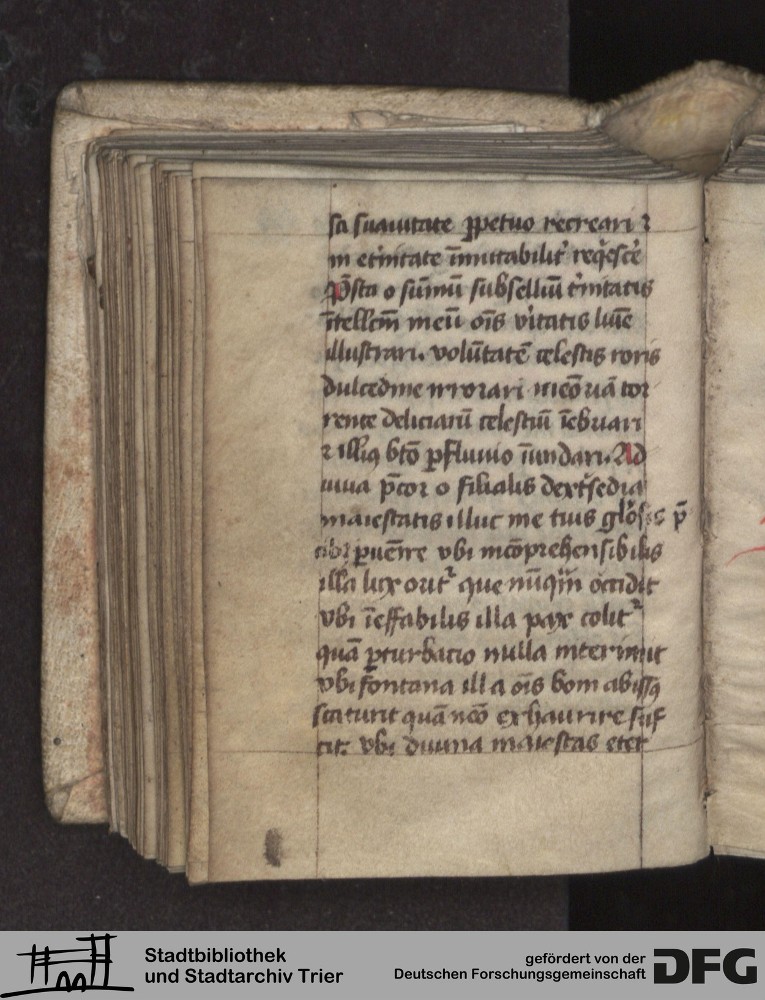 sa suauitate ꝑpetuo recreari ⁊
in et̓nitate īmutabilit̓ reqͥesce̓
P̄sta o sūmū subselliū t̓nitatis
ītellcm̄ meū oīs v̓itatis lūīe
illustrari. volūtatē celestis roris
dulcedine irrorari
rente deliciarū celestiū īebriari
⁊ illiꝰ bt̄o ꝑfluuio īundari. Ad
iuua p̄cor o filialis dext̓sedia
maiestatis illuc me tuis p̄
cibꝫ ꝑuēīre vbi incōprehensibilis
illa lux orit᷑ que nūqͣm occidit
vbi īeffabilis illa pax colit᷑
quā ꝑturbacio nulla interimit
vbi fontana illa oīs boni abissꝰ
scaturit quā exhaurire suf
cit: vbi diuina maiestas eter
Stadtbibliothek
und Stadtarchiv Trier
gefördert von der
Deutschen Forschungsgemeinschaft
DFG